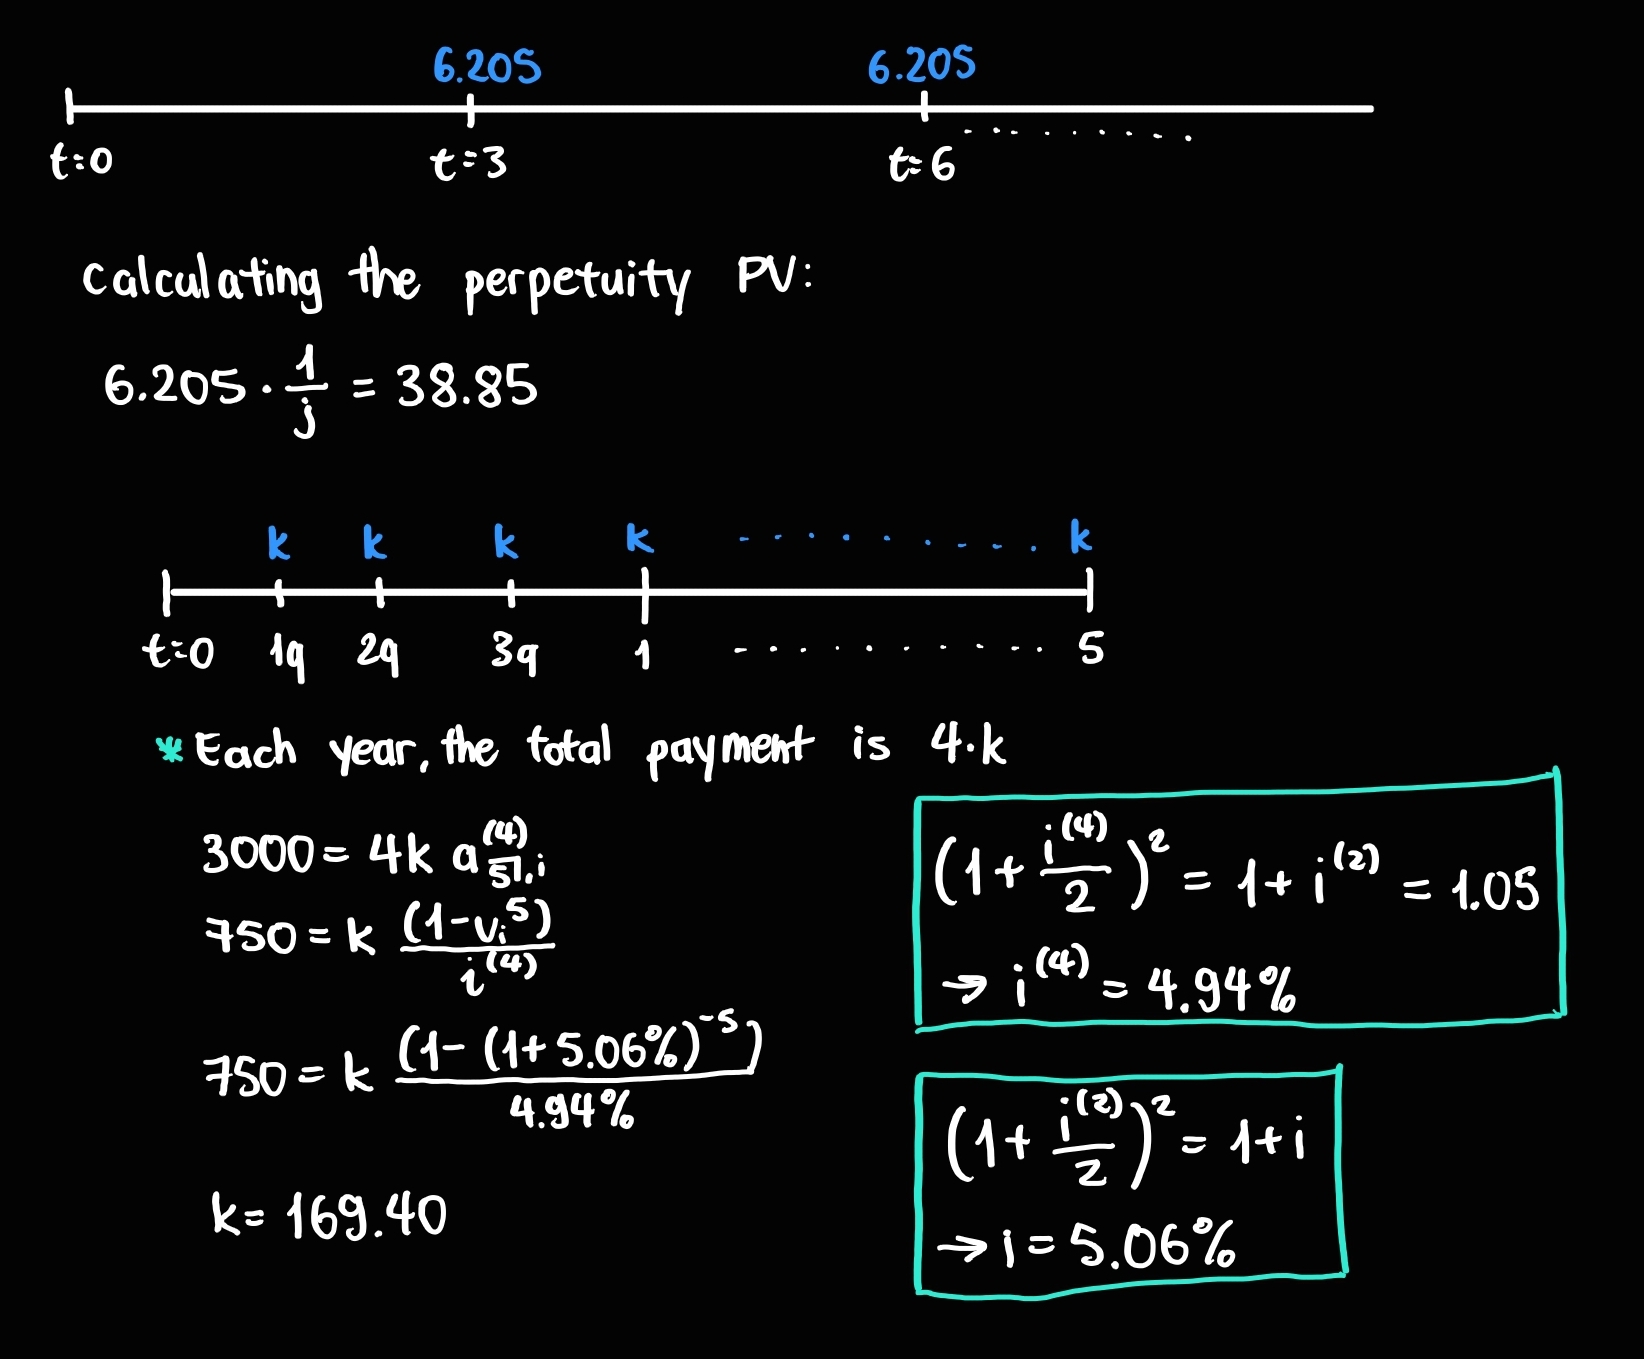 6.205 6.205
t=0 t=3 t=6 ........
Calculating the perpetuity PV:
6.205 · 1/j = 38.85
k k k k .......... k
t=0 1q 2q 3q 1 .......... 5
* Each year, the total payment is 4·k
3000 = 4k a^(4)_5┐,i
750 = k (1-v_i^5)/i^(4)
750 = k (1-(1+5.06%)^-5)/4.94%
k = 169.40
(1+ i^(4)/2)^2 = 1+i^(2) = 1.05
→ i^(4) = 4.94%
(1+ i^(2)/2)^2 = 1+i
→ i = 5.06%